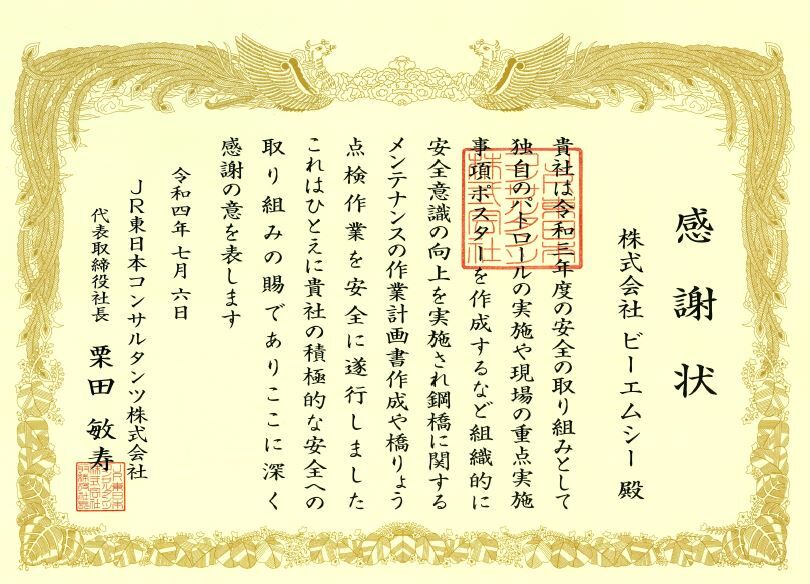 感謝状
株式会社 ビーエムシー 殿
貴社は令和三年度の安全の取り組みとして
独自のパトロールの実施や現場の重点実施
事項ポスターを作成するなど組織的に
安全意識の向上を実施され鋼橋に関する
メンテナンスの作業計画書作成や橋りょう
点検作業を安全に遂行しました
これはひとえに貴社の積極的な安全への
取り組みの賜でありここに深く
感謝の意を表します
令和四年七月六日
JR東日本コンサルタンツ株式会社
代表取締役社長 栗田 敏寿